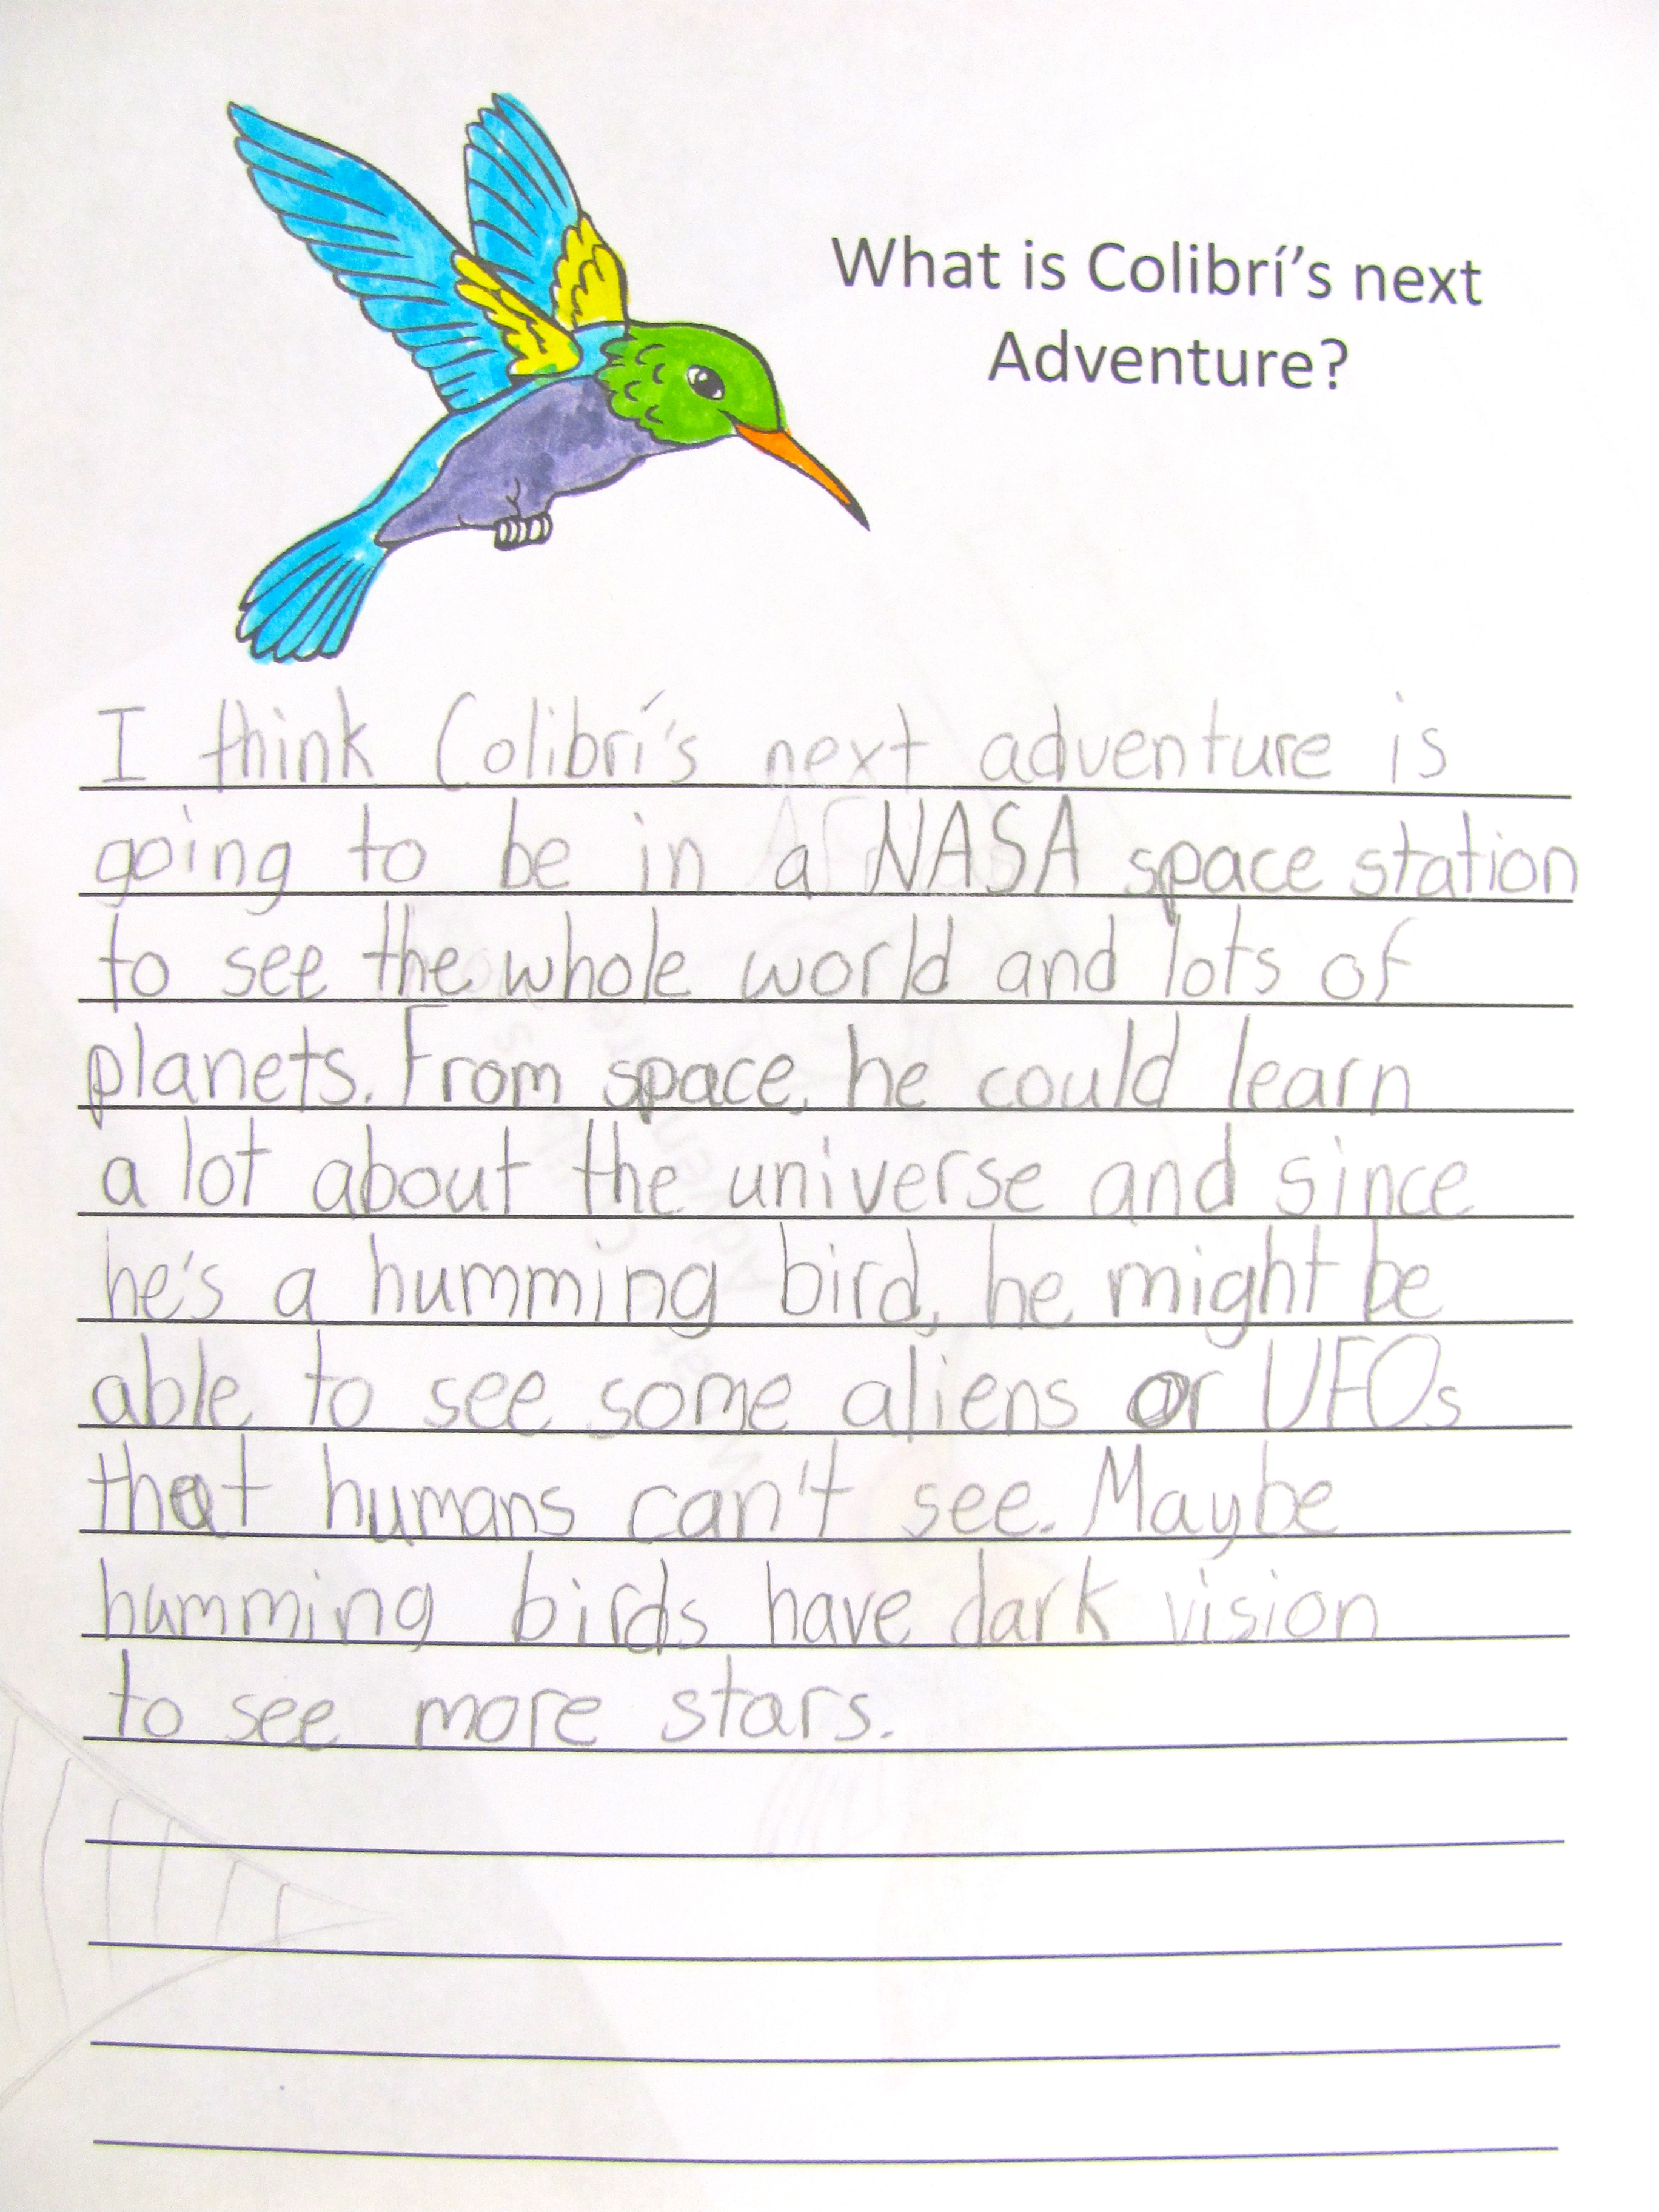 What is Colibrí's next
Adventure?
I think Colibrí's next adventure is
going to be in a NASA space station
to see the whole world and lots of
planets. From space, he could learn
a lot about the universe and since
he's a humming bird, he might be
able to see some aliens or UFOs
that humans can't see. Maybe
humming birds have dark vision
to see more stars.